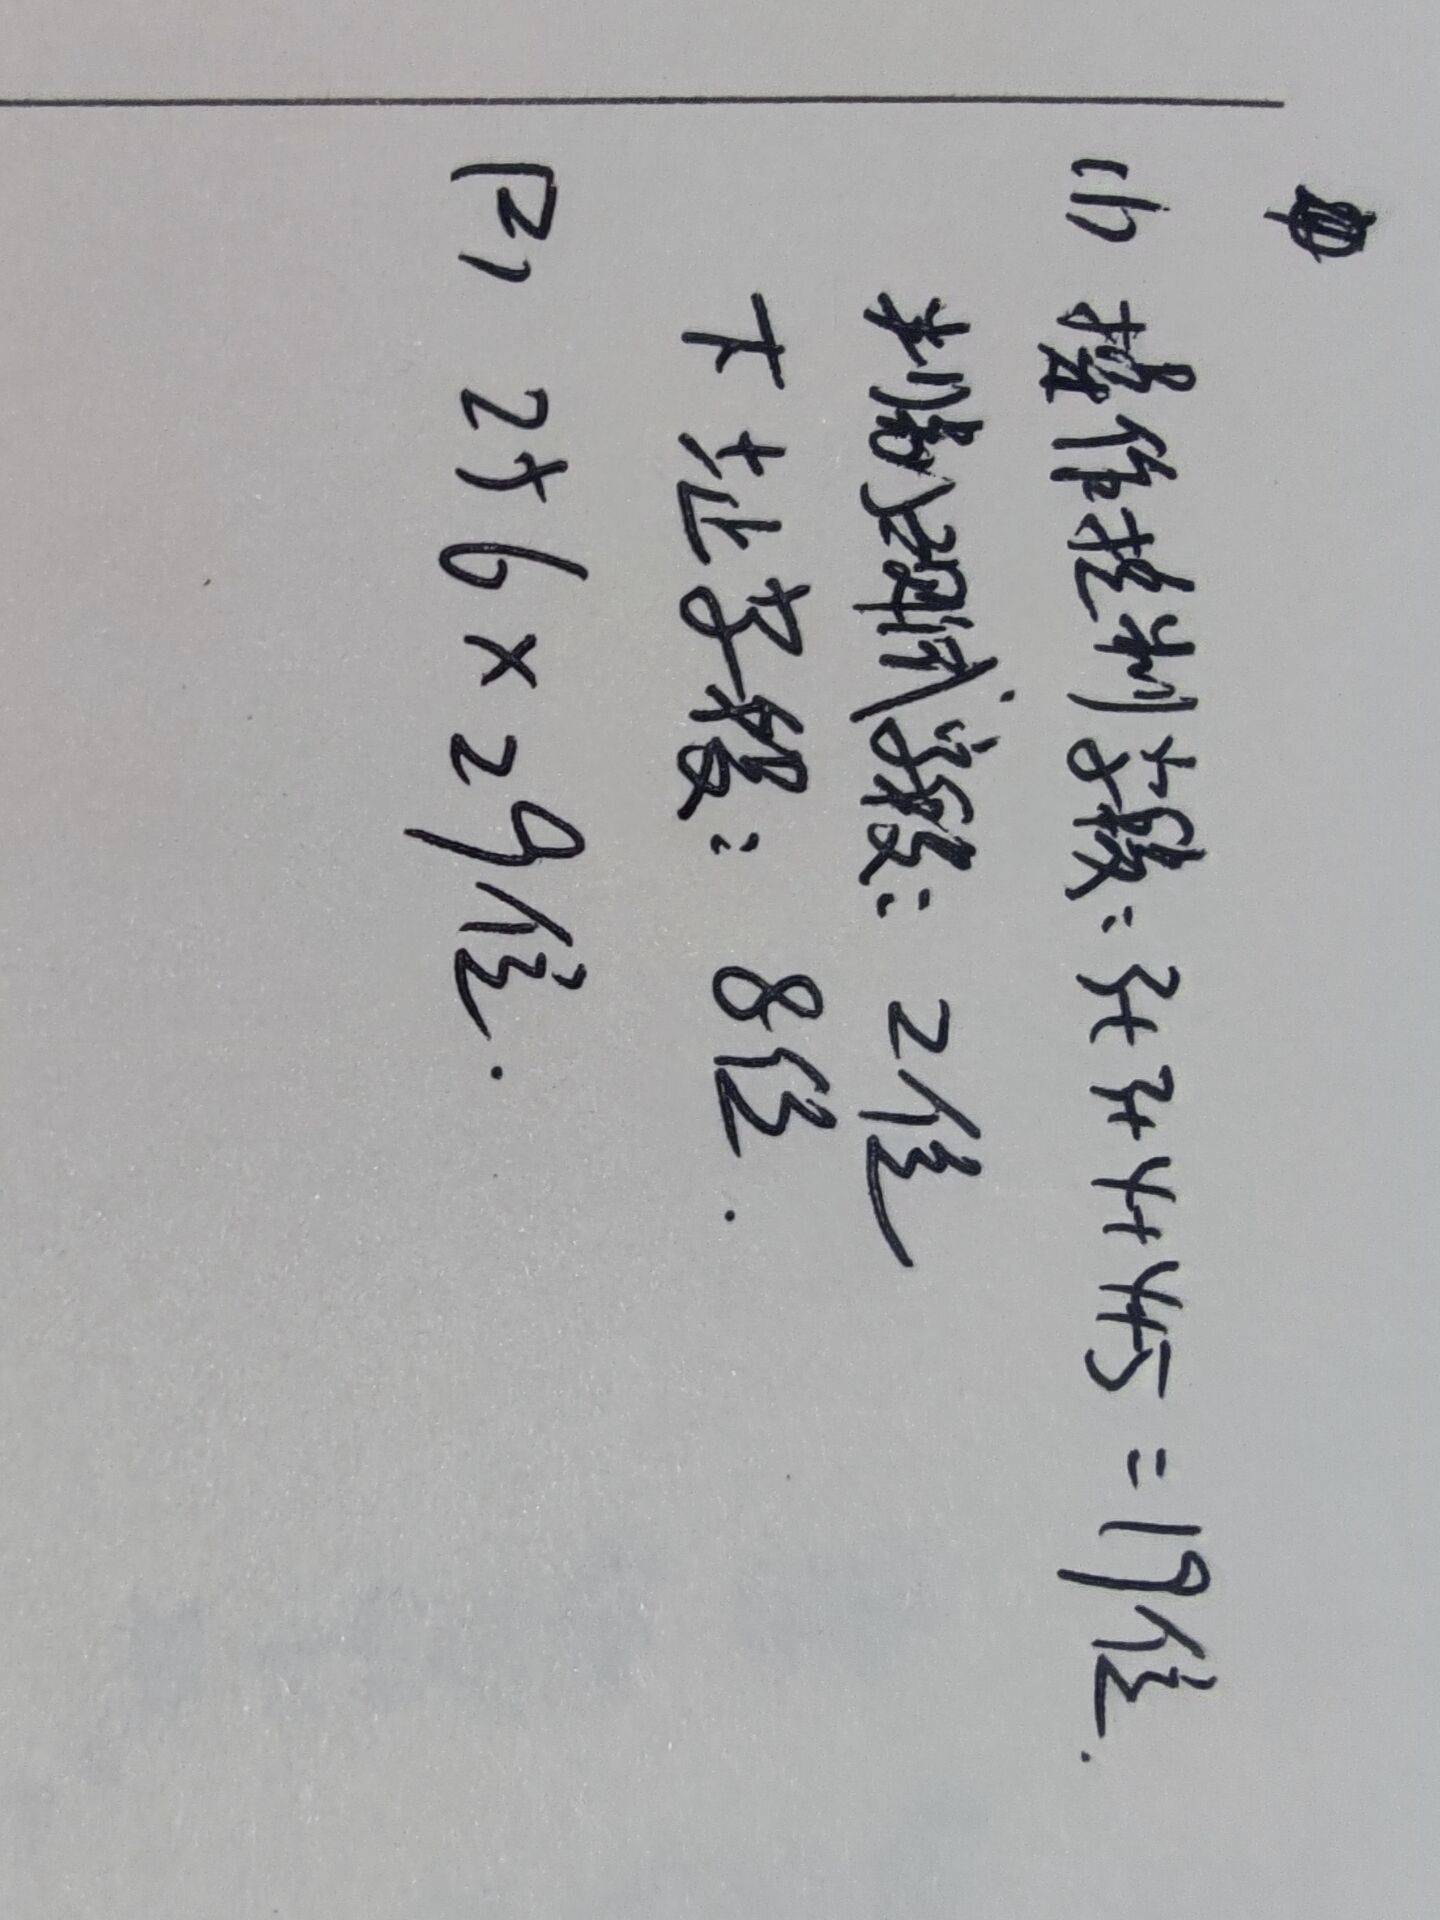 (1) 操作控制字段：3+3+4+4+5=19位.
判别测试字段：2位
下址字段：8位.
(2) 256×29位.